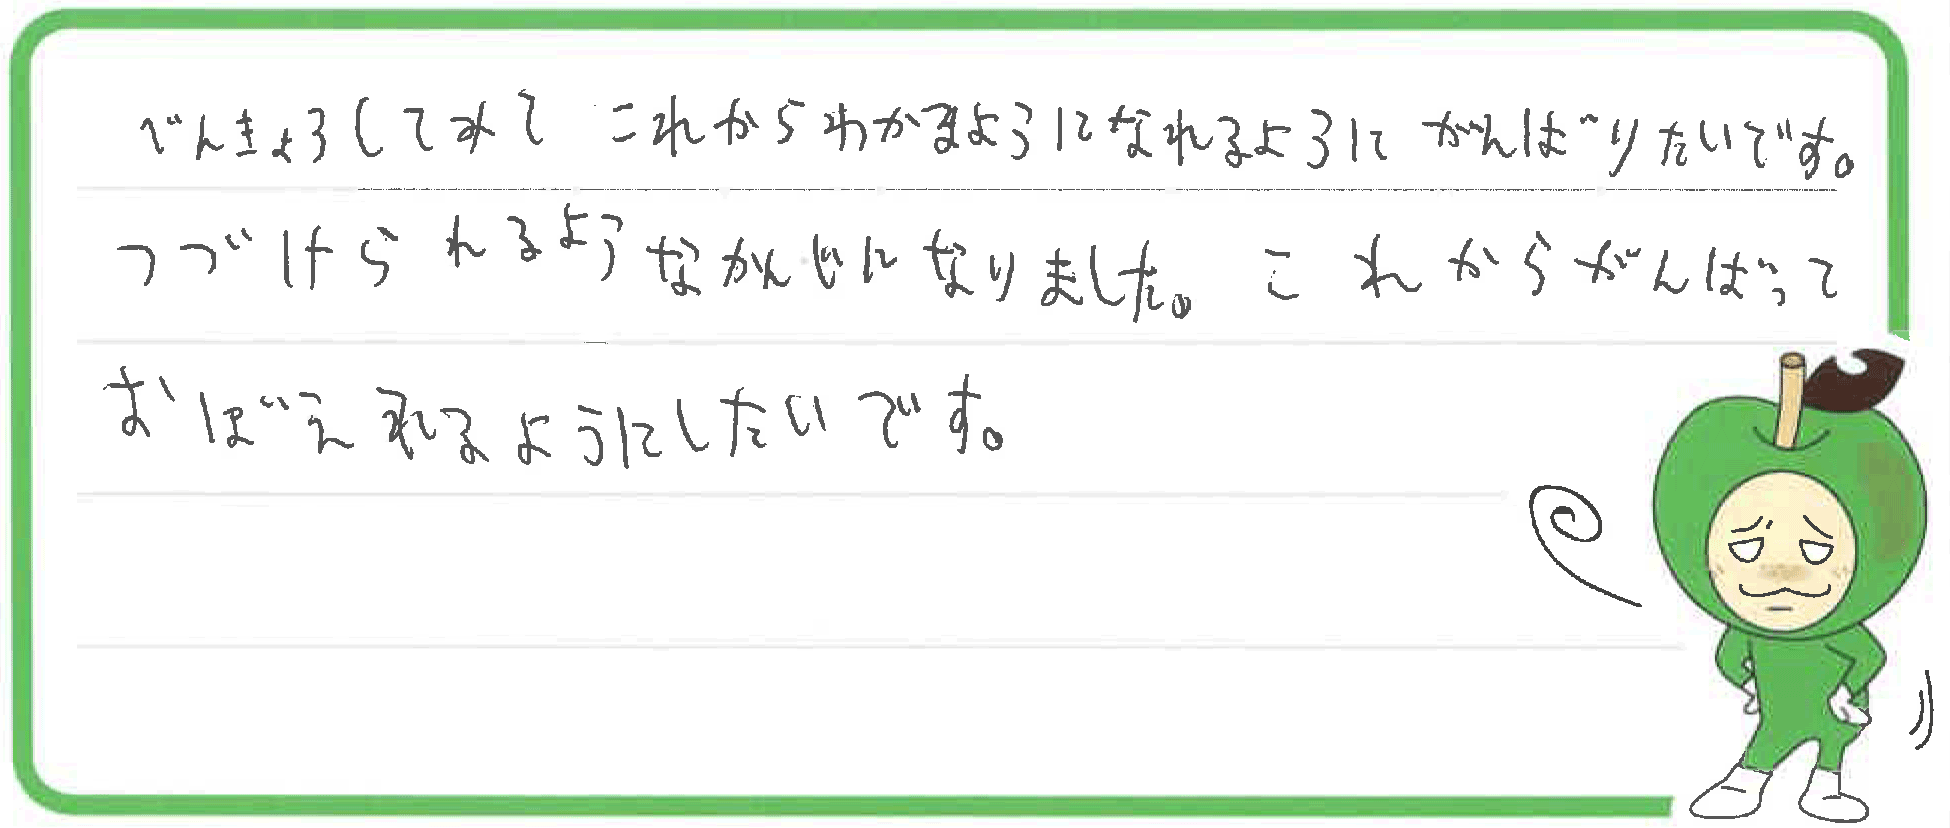 べんきょうしてみて これからわかるようになれるように がんばりたいです。
つづけられるようなかんじになりました。 これからがんばって
おぼえれるようにしたいです。